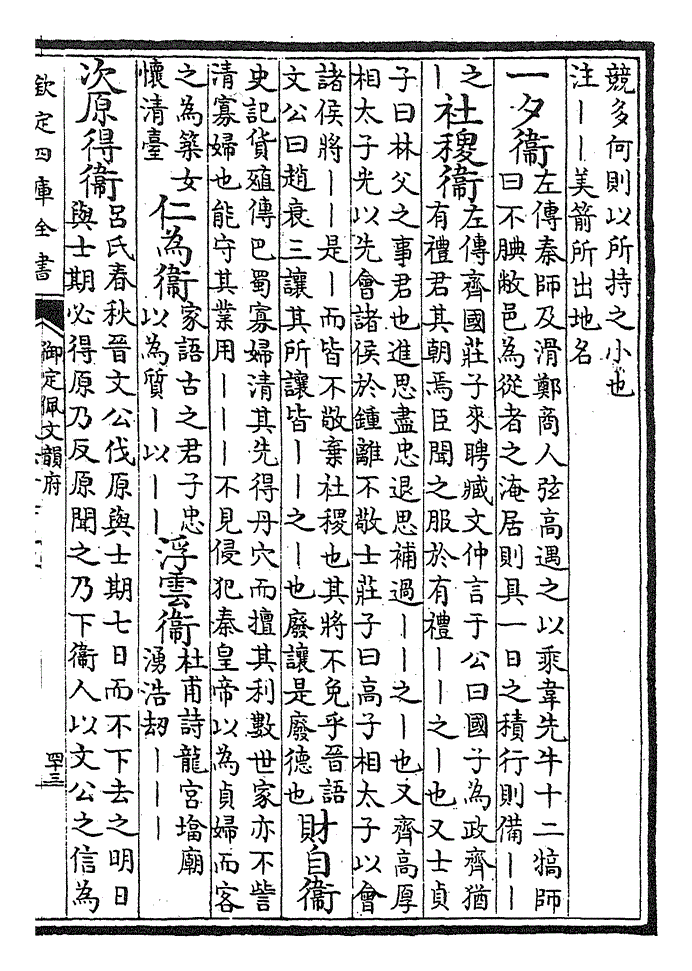 競多何則以所持之小也
注――美箭所出地名
一夕衞
左傳秦師及滑鄭商人弦高遇之以乘韋先牛十二犒師
曰不腆敝邑為從者之淹居則具一日之積行則備――
之
―
社稷衞
左傳齊國莊子來聘臧文仲言于公曰國子為政齊猶
有禮君其朝焉臣聞之服於有禮――之―也又士貞
子曰林父之事君也進思盡忠退思補過――之―也又齊高厚
相太子光以先會諸侯於鍾離不敬士莊子曰高子相太子以會
諸侯將――是―而皆不敬棄社稷也其將不免乎晉語
文公曰趙衰三讓其所讓皆――之―也廢讓是廢德也
財自衞
史記貨殖傳巴蜀寡婦清其先得丹穴而擅其利數世家亦不訾
清寡婦也能守其業用―――不見侵犯秦皇帝以為貞婦而客
之為築女
懷清臺
仁為衞
家語古之君子忠
以為質―以――
浮雲衞
杜甫詩龍宮塔廟
湧浩劫―――
次原得衞
呂氏春秋晉文公伐原與士期七日而不下去之明日
與士期必得原乃反原聞之乃下衞人以文公之信為
欽定四庫全書
御定佩文韻府
罕三